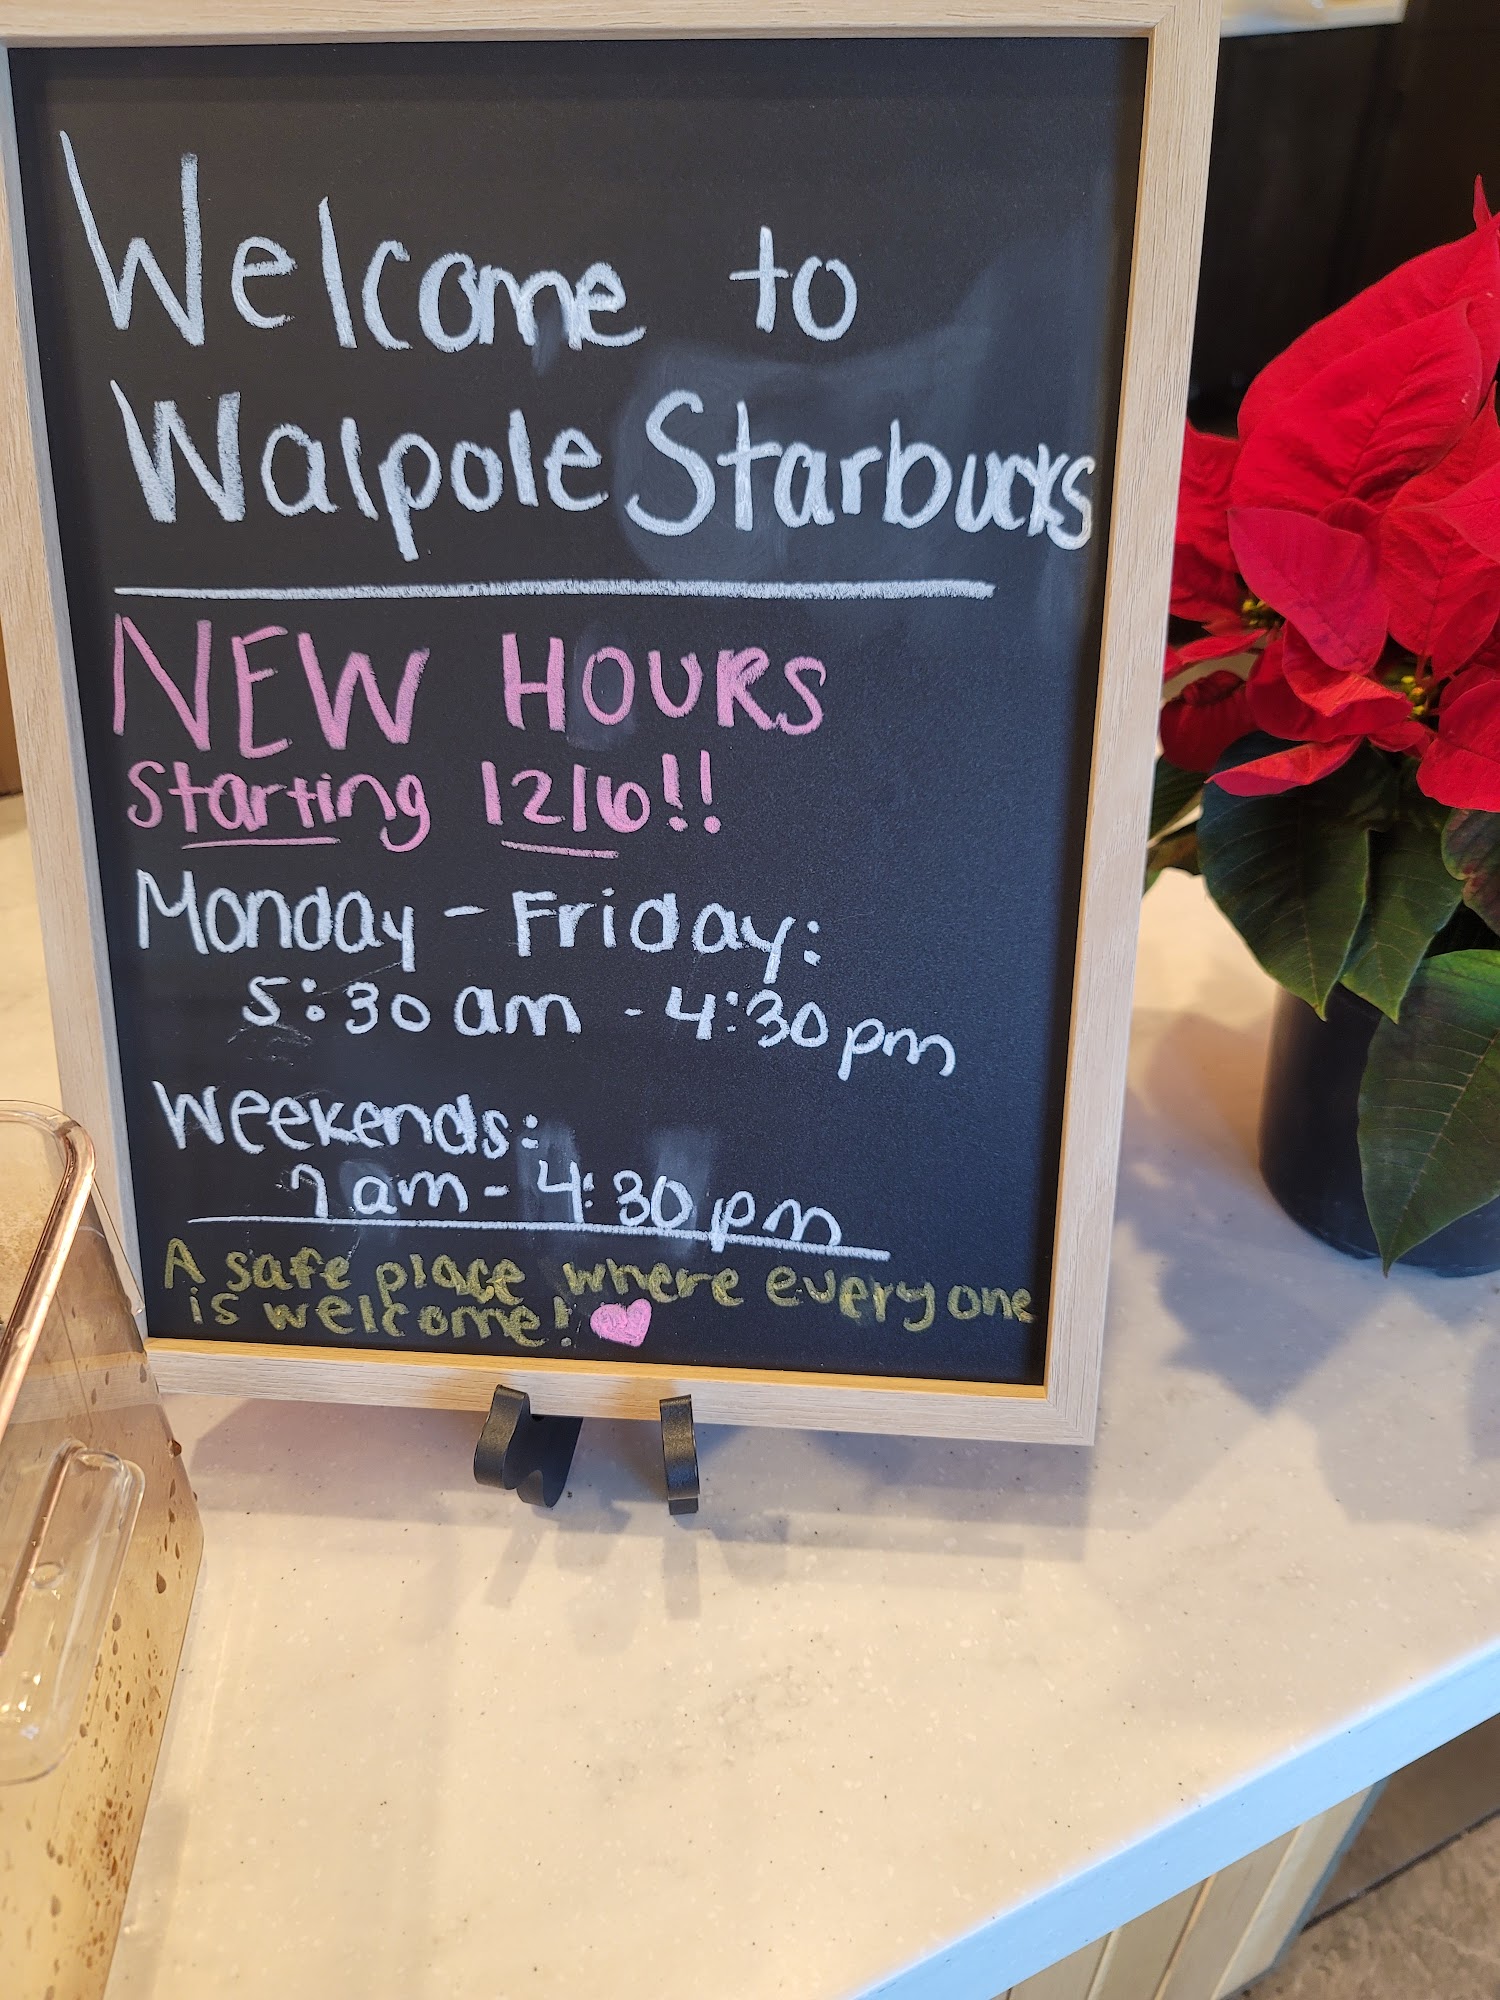 Welcome to
Walpole Starbucks
NEW HOURS
starting 12/6!!
Monday - Friday:
5:30 am - 4:30 pm
Weekends:
7 am - 4:30 pm
A safe place where everyone
is welcome!